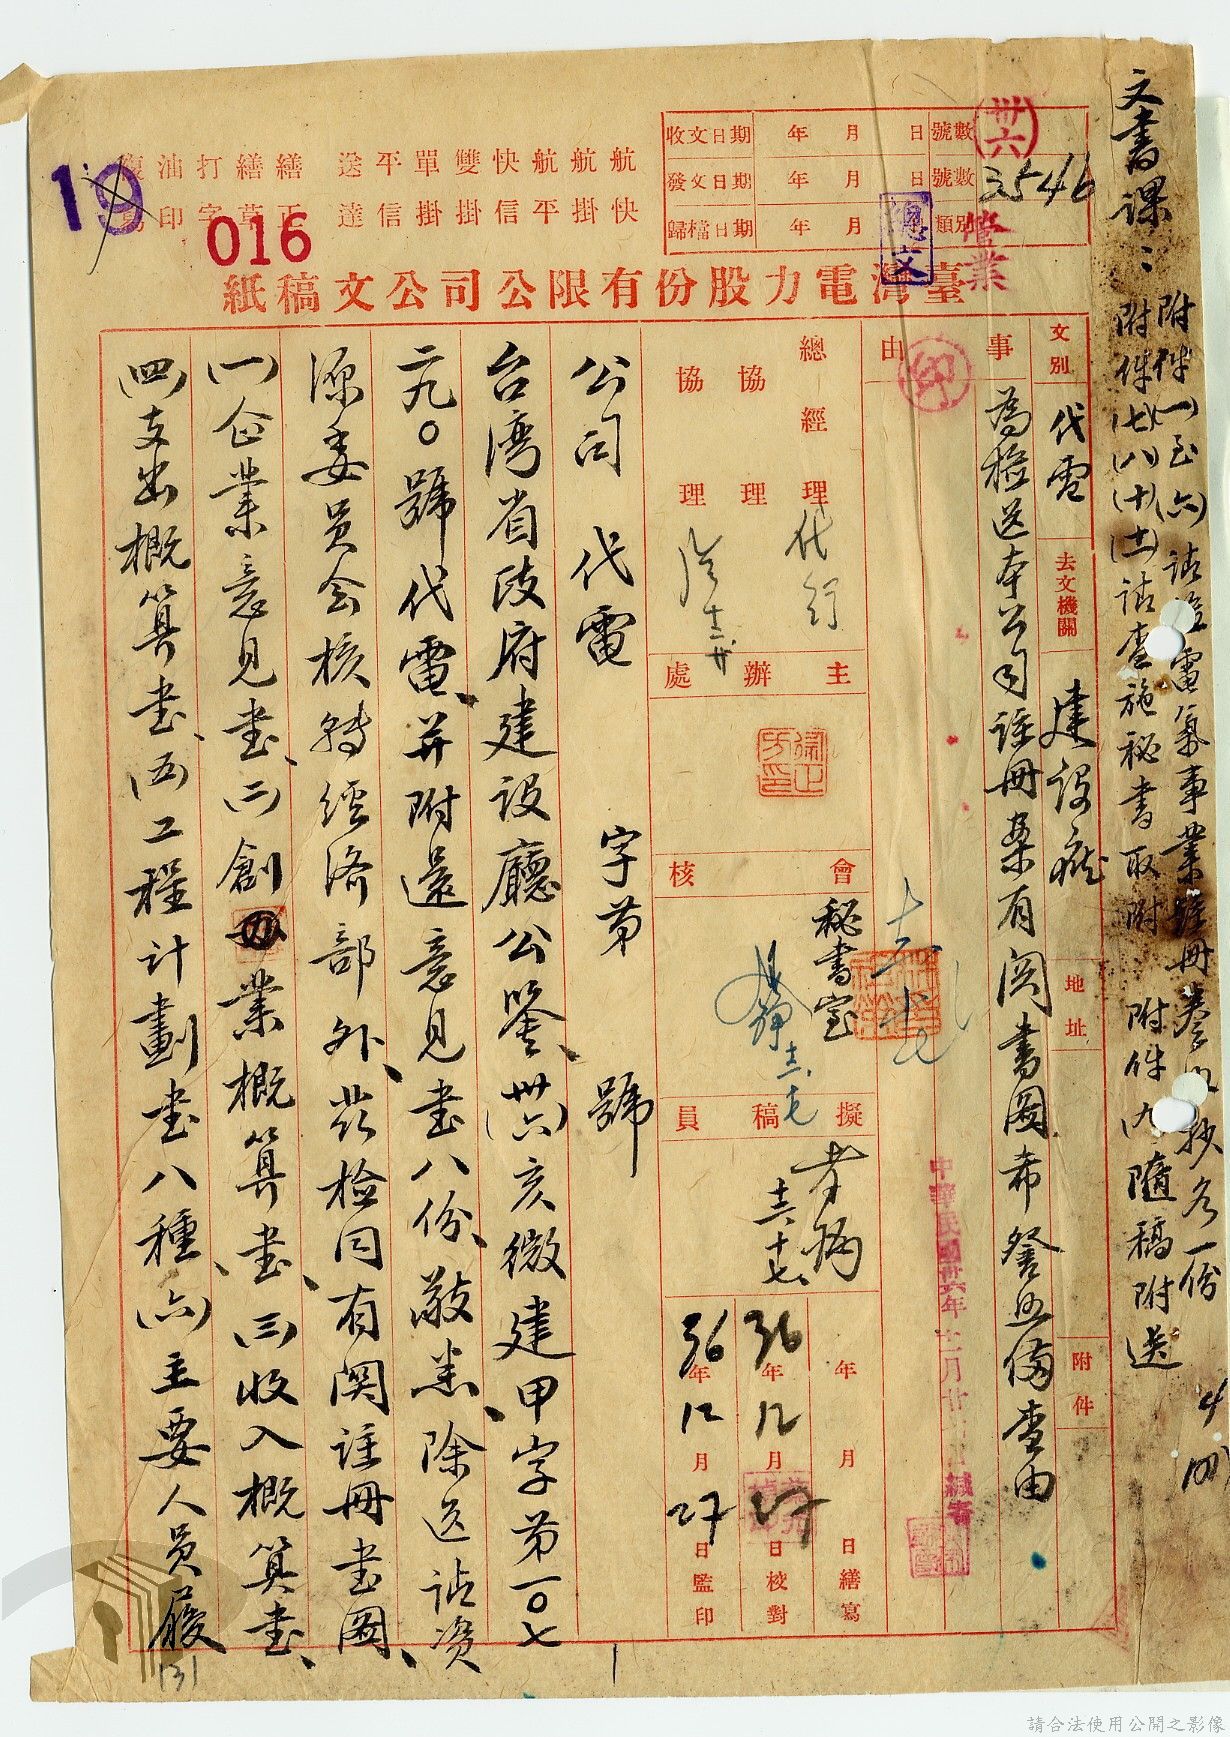 文書課：附件(一)至(六)請檢電氣事業註冊 抄各一份
附件(七)(八)(十)(土)請查施秘書取附 附件(九)隨稿附送
收文日期 年 月 日 號數
發文日期 年 月 日 號數
歸檔日期 年 月 類別
(卅六)
3546
管業
總文
航快 航掛 航平 快信 雙掛 單掛 平信 送達
繕正 繕草 打字 油印
19
016
臺灣電力股份有限公司公文稿紙
文別 代電 去文機關 建設廳 地址 附件
事由 印
為檢送本公司註冊案有関書圖希詧照備查由
中華民國卅六年十二月廿 日緘寄
總經理 代行
協理
協理
主辦處
會核 秘書室
擬稿員
年 月 日繕寫
36年12月27日校對
36年12月27日監印
公司代電 字第 號
台湾省政府建設廳公鑒、(卅六)亥微建甲字第一〇七
二九〇號代電、并附還意見書八份、敬悉、除送請資
源委員会核轉経済部外、茲检同有関註冊書圖、
(一)企業意見書、(二)創業概算書、(三)收入概算書、
(四)支出概算書、(五)工程計劃書八種、(六)主要人員履
131
請合法使用公開之影像